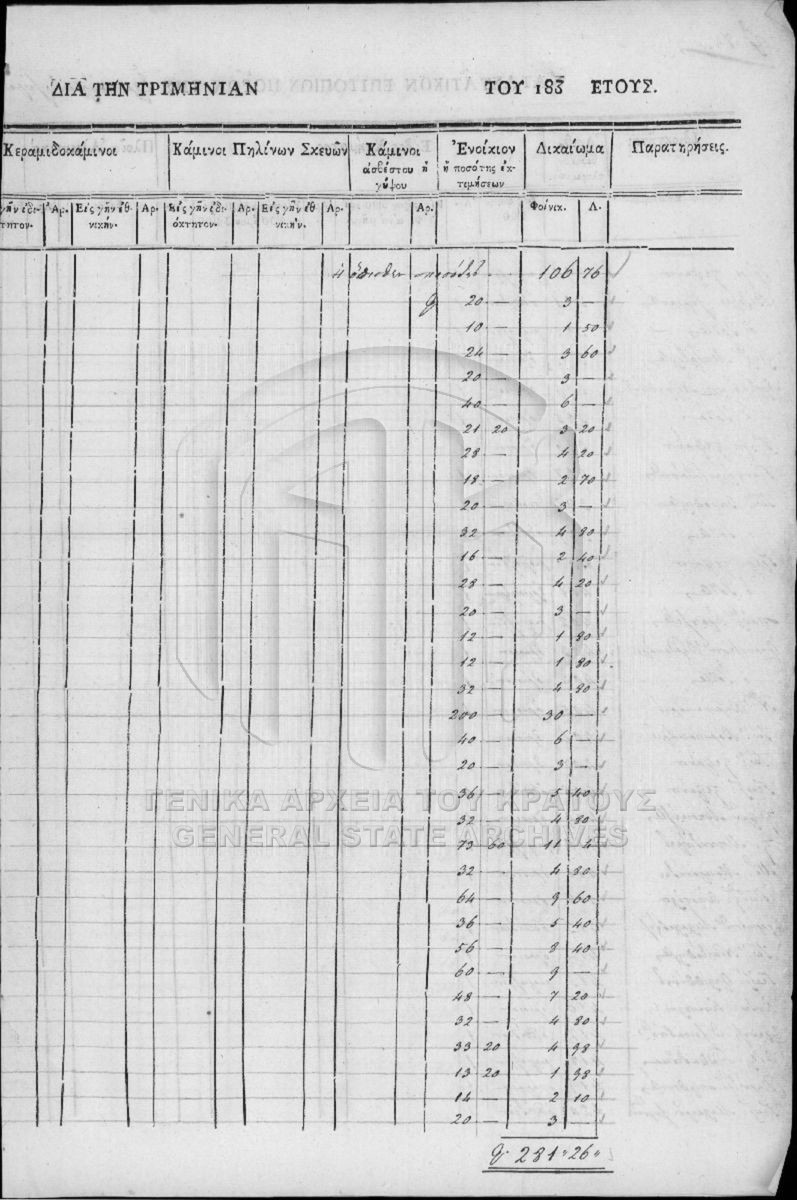 ΔΙΑ ΤΗΝ ΤΡΙΜΗΝΙΑΝ ΤΟΥ 183 ΕΤΟΥΣ.
Κεραμιδοκάμινοι Κάμινοι Πηλίνων Σκευῶν Κάμινοι Ἐνοίκιον Δικαίωμα Παρατηρήσεις.
ἀσβέστου ἢ ἢ ποσότης ἐκ-
γύψου τιμήσεων
γῆν ἰδι- Ἀρ. Εἰς γῆν ἐθ- Ἀρ. Εἰς γῆν ἰδι- Ἀρ. Εἰς γῆν ἐθ- Ἀρ. Ἀρ. Φοίνικ. Λ.
τητον. νικήν. όκτητον. νικήν.
ἡ ὄπισθεν ποσότης 106 76
20 — 3 —
10 — 1 50
24 — 3 60
20 — 3 —
40 — 6 —
21 20 3 20
28 — 4 20
18 — 2 70
20 — 3 —
32 — 4 80
16 — 2 40
28 — 4 20
20 — 3 —
12 — 1 80
12 — 1 80
32 — 4 80
200 — 30 —
40 — 6 —
20 — 3 —
36 — 5 40
32 — 4 80
73 60 11 4
32 — 4 80
64 — 9 60
36 — 5 40
56 — 8 40
60 — 9 —
48 — 7 20
32 — 4 80
33 20 4 98
13 20 1 98
14 — 2 10
20 — 3 —
281 " 26 "
ΓΕΝΙΚΑ ΑΡΧΕΙΑ ΤΟΥ ΚΡΑΤΟΥΣ
GENERAL STATE ARCHIVES